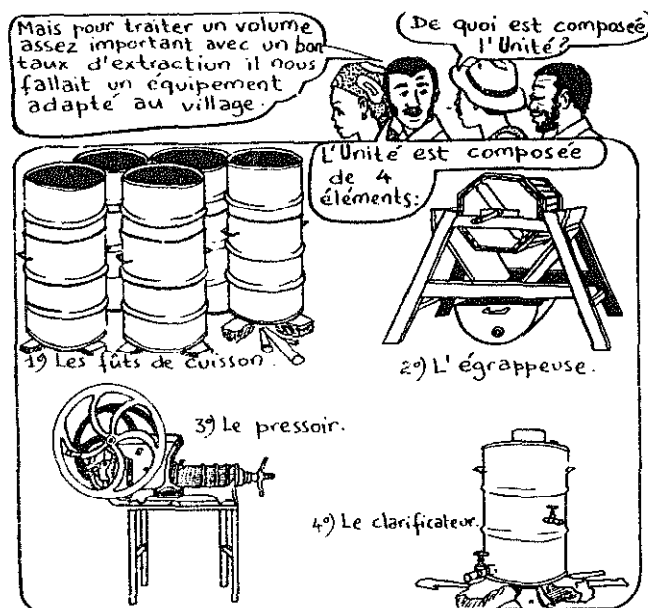 Mais pour traiter un volume
assez important avec un bon
taux d'extraction il nous
fallait un équipement
adapté au village.
De quoi est composée
l'Unité?
L'Unité est composée
de 4
éléments:
1º) Les fûts de cuisson.
2º) L'égrappeuse.
3º) Le pressoir.
4º) Le clarificateur.